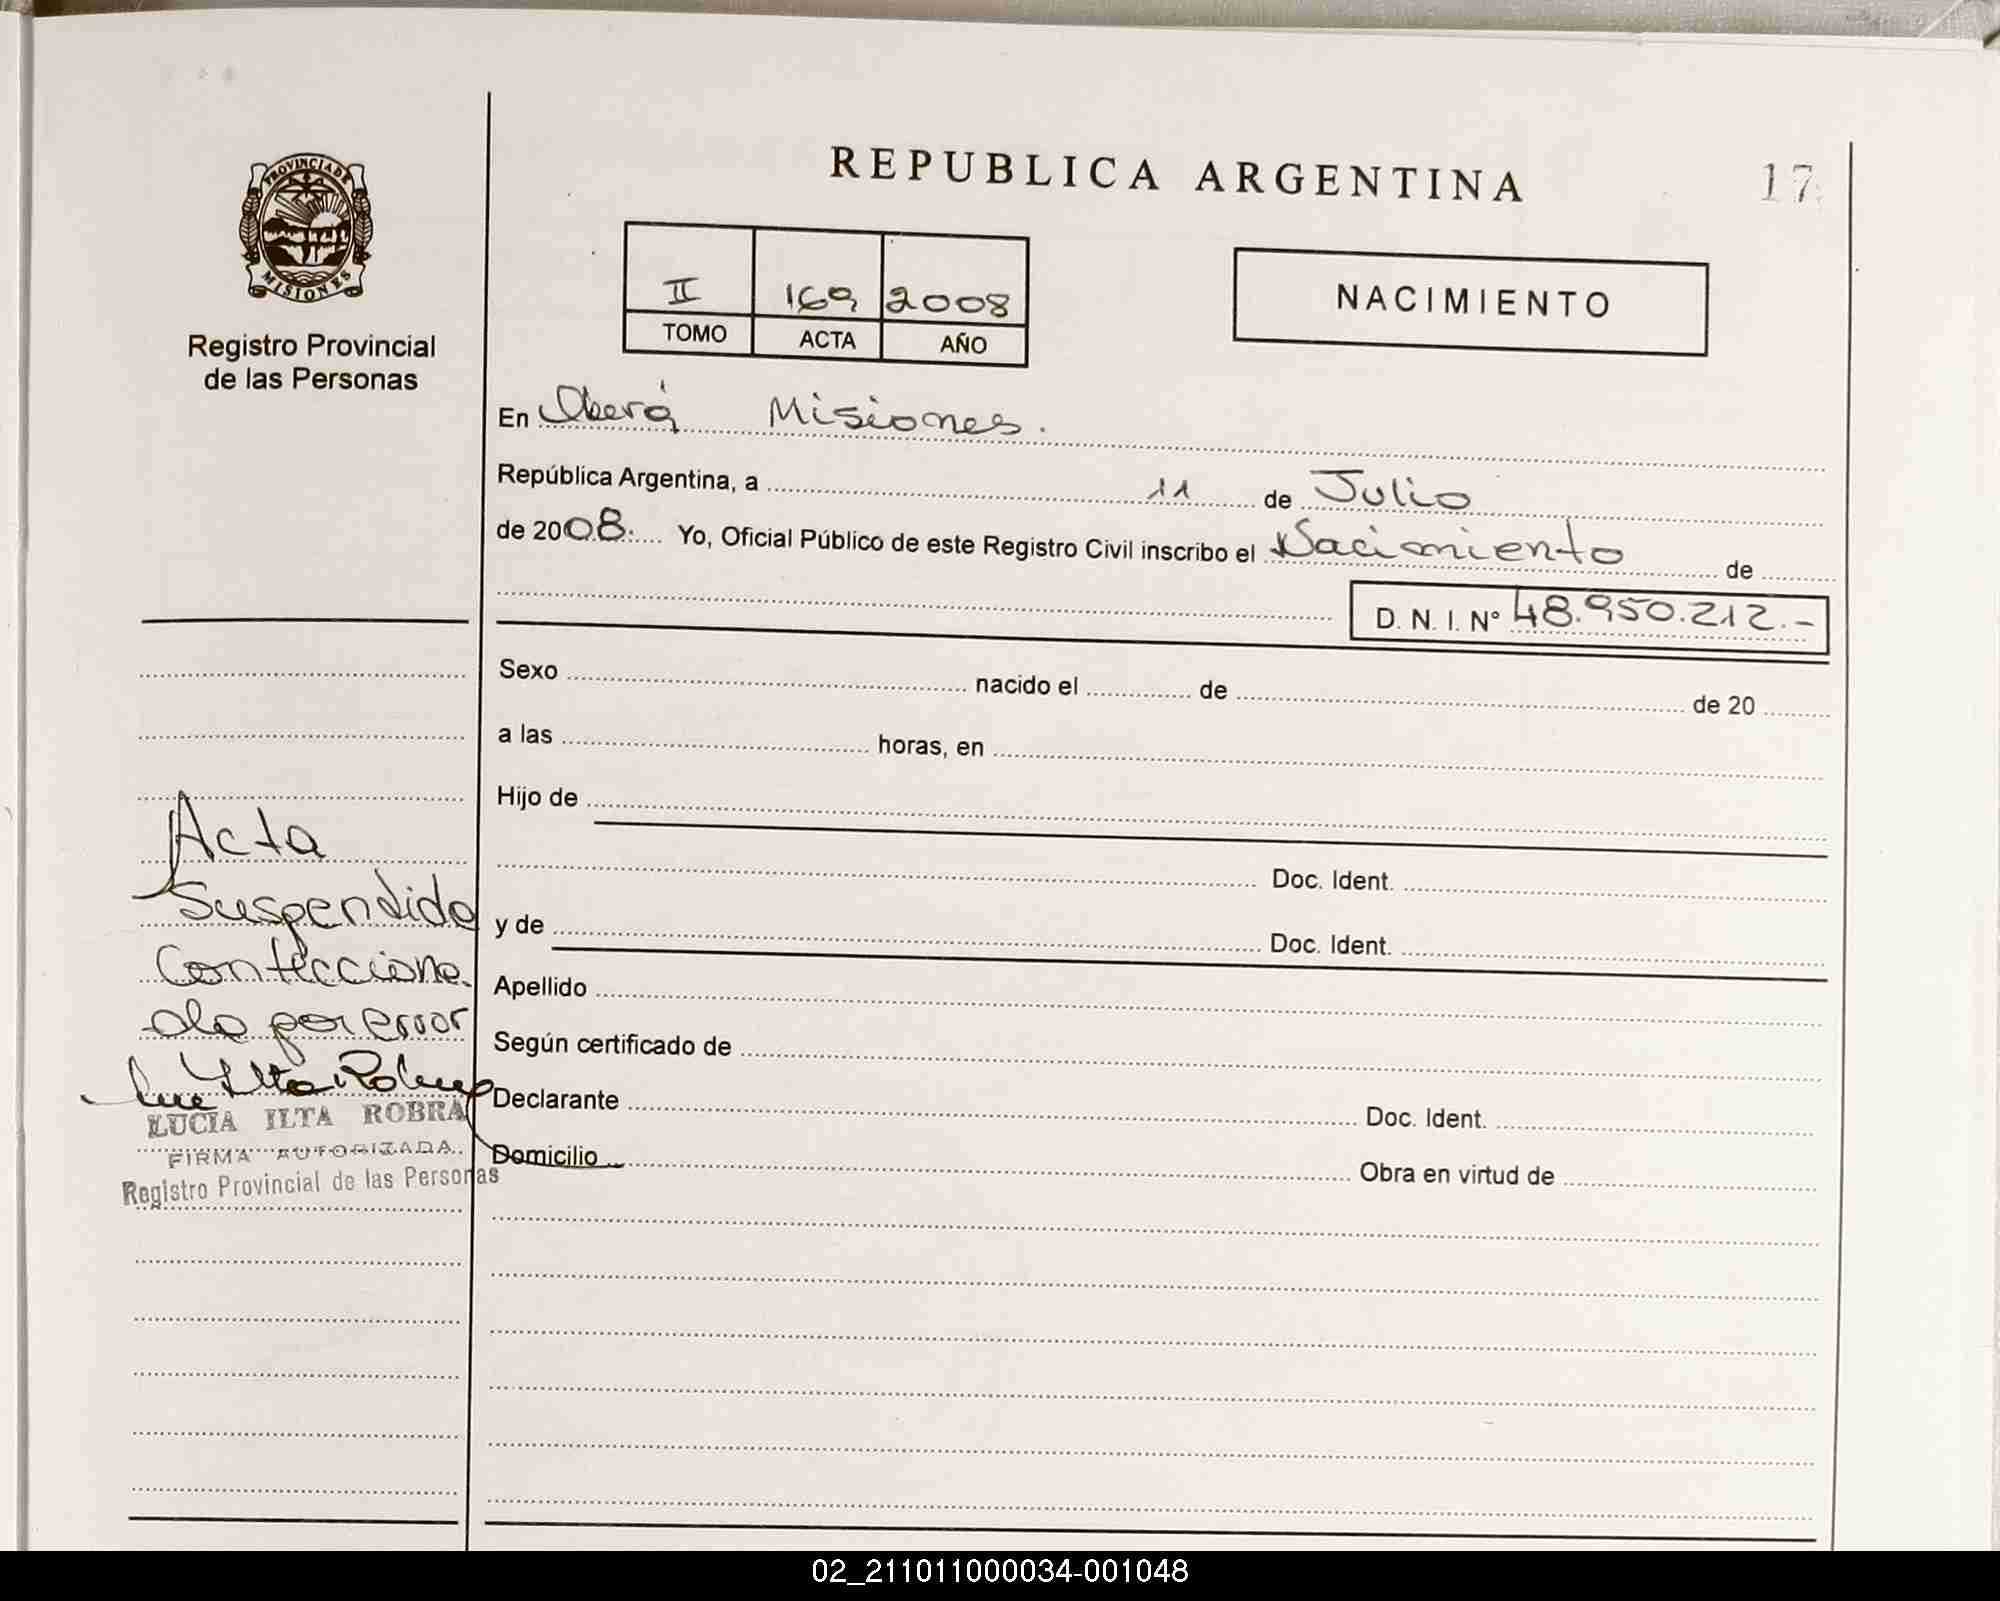 REPUBLICA ARGENTINA
17
PROVINCIA DE
MISIONES
Registro Provincial
de las Personas
II 169 2008
TOMO ACTA AÑO
NACIMIENTO
En Oberá Misiones.
República Argentina, a 11 de Julio
de 2008. Yo, Oficial Público de este Registro Civil inscribo el Nacimiento de
D. N. I. Nº 48.950.212.-
Sexo nacido el de de 20
a las horas, en
Hijo de
Doc. Ident.
y de Doc. Ident.
Apellido
Según certificado de
Declarante Doc. Ident.
Domicilio Obra en virtud de
Acta
Suspendida
Confecciona-
da por error
LUCIA ILTA ROBRA
FIRMA AUTORIZADA
Registro Provincial de las Personas
02_211011000034-001048